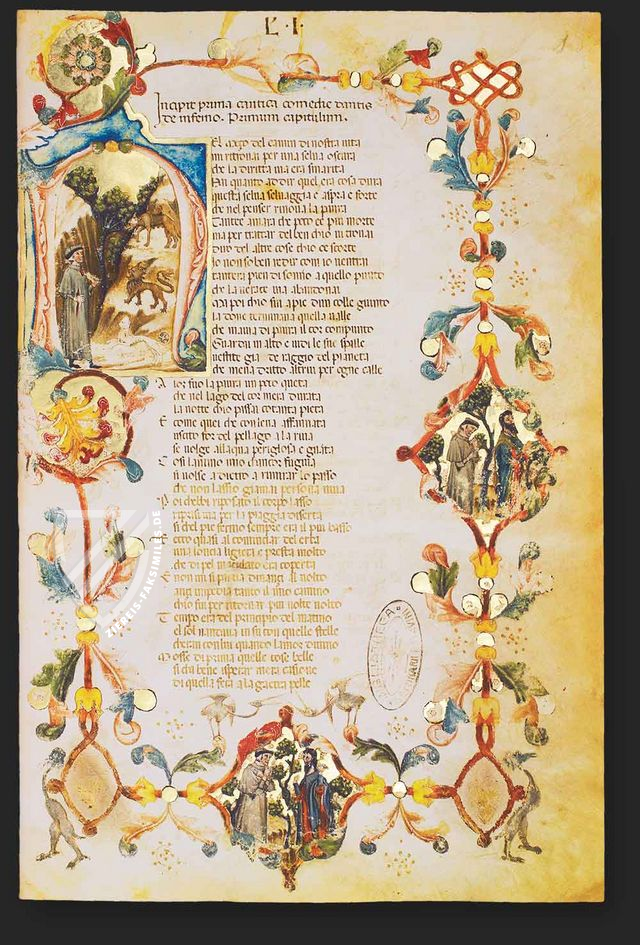 L · I ·
Incipit prima cantica comedie dantis
de inferno. Primum capitulum.
El mezo del camin di nostra vita
mi ritrovai per una selva oscura
che la diritta via era smarita
quanto a dir quel era cosa dura
questa selva selvaggia e aspra e forte
che nel penser rinova la paura
Tanto amara che poco e piu morte
ma per trattar del ben chio vi trovai
diro del altre cose chio ce scorte
Io non so ben redir com io ventrai
tantera pien di sonno a quello punto
che la verace via abandonai
Ma poi chio fui apie dun colle giunto
la dove terminava quella valle
che mavia di paura il cor compunto
Guardai in alto e vidi le sue spalle
vestite gia de raggio del pianeta
che mena dritto altrui per ogne calle
A lor fuo la paura un poco queta
che nel lago del cor mera durata
la notte chio passai cotanta pieta
E come quei che con lena affannata
uscito for del pellago a la riva
se volge allaqua perigliosa e guata
Cosi lanimo mio chancor fugiva
si volse a dietro a rimirar lo passo
che non lasso giamai persona viva
Poi chebbi riposato il corpo lasso
ripresi via per la piaggia diserta
si chel pie fermo sempre era il piu basso
Et ecco quasi al cominciar del erta
una lonza ligiera e presta molto
che di pel maculato era coperta
E non mi si partia dinanzi al volto
anzi impedia tanto il mio camino
chio fui per ritornar piu volte volto
Tempo era del principio del matino
el sol montava in su con quelle stelle
cheran con lui quando lamor divino
Mosse di prima quelle cose belle
si cha bene sperar mera casione
di quella fera a la gaetta pelle
ZIEREIS-FAKSIMILE.DE